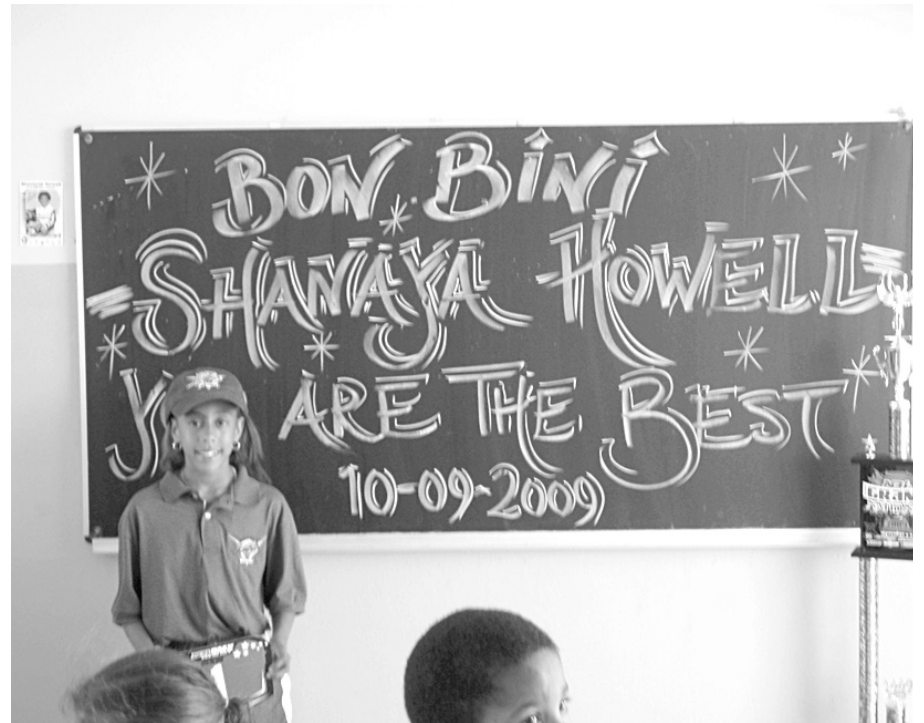 BON BINI
SHANAYA HOWELL
ARE THE BEST
10-09-2009
GRAN